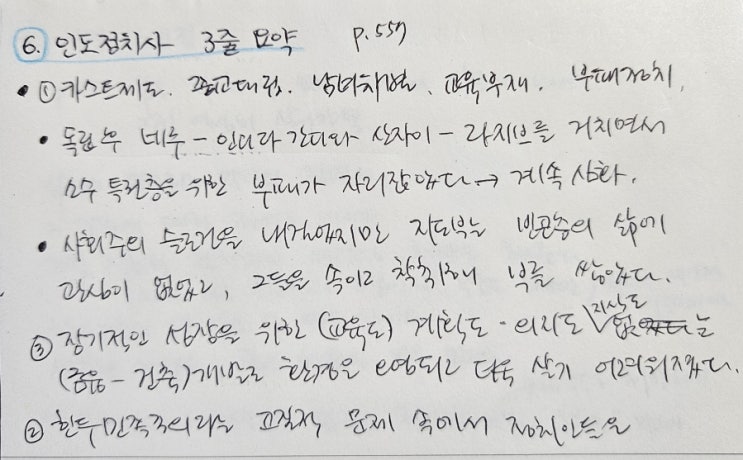 6. 인도정치사 3줄 요약 p.557
• ① 카스트제도. 종교대립. 남녀차별. 교육부재. 부패정치.
• 독립후 네루 - 인디라 간디와 산자이 - 라지브를 거치면서
소수 특권층을 위한 부패가 자리잡았다 → 계속 심화.
• 사회주의 슬로건을 내걸었지만 지도부는 빈곤층의 삶에
관심이 없었고, 그들을 속이고 착취해 부를 쌓았다.
③ 장기적인 성장을 위한 (교육도) 계획도 · 의지도 지상도 없었다는
(금융 - 건축) 개발로 환경은 오염되고 더욱 살기 어려워졌다.
② 힌두민족주의라는 고질적 문제 속에서 정치인들은